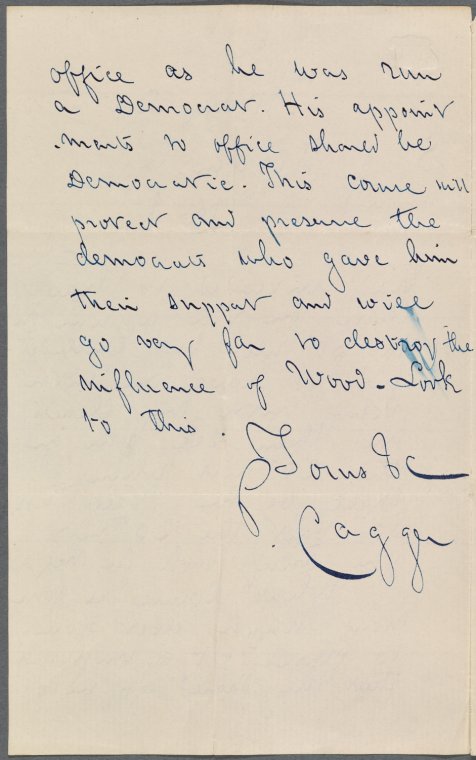 office as he was run
a Democrat. His appoint
-ments to office should be
Democratic. This course will
protect and preserve the
democrats who gave him
their support and will
go very far to destroy the
influence of Wood - Look
to this.
Yours &c
Cagger